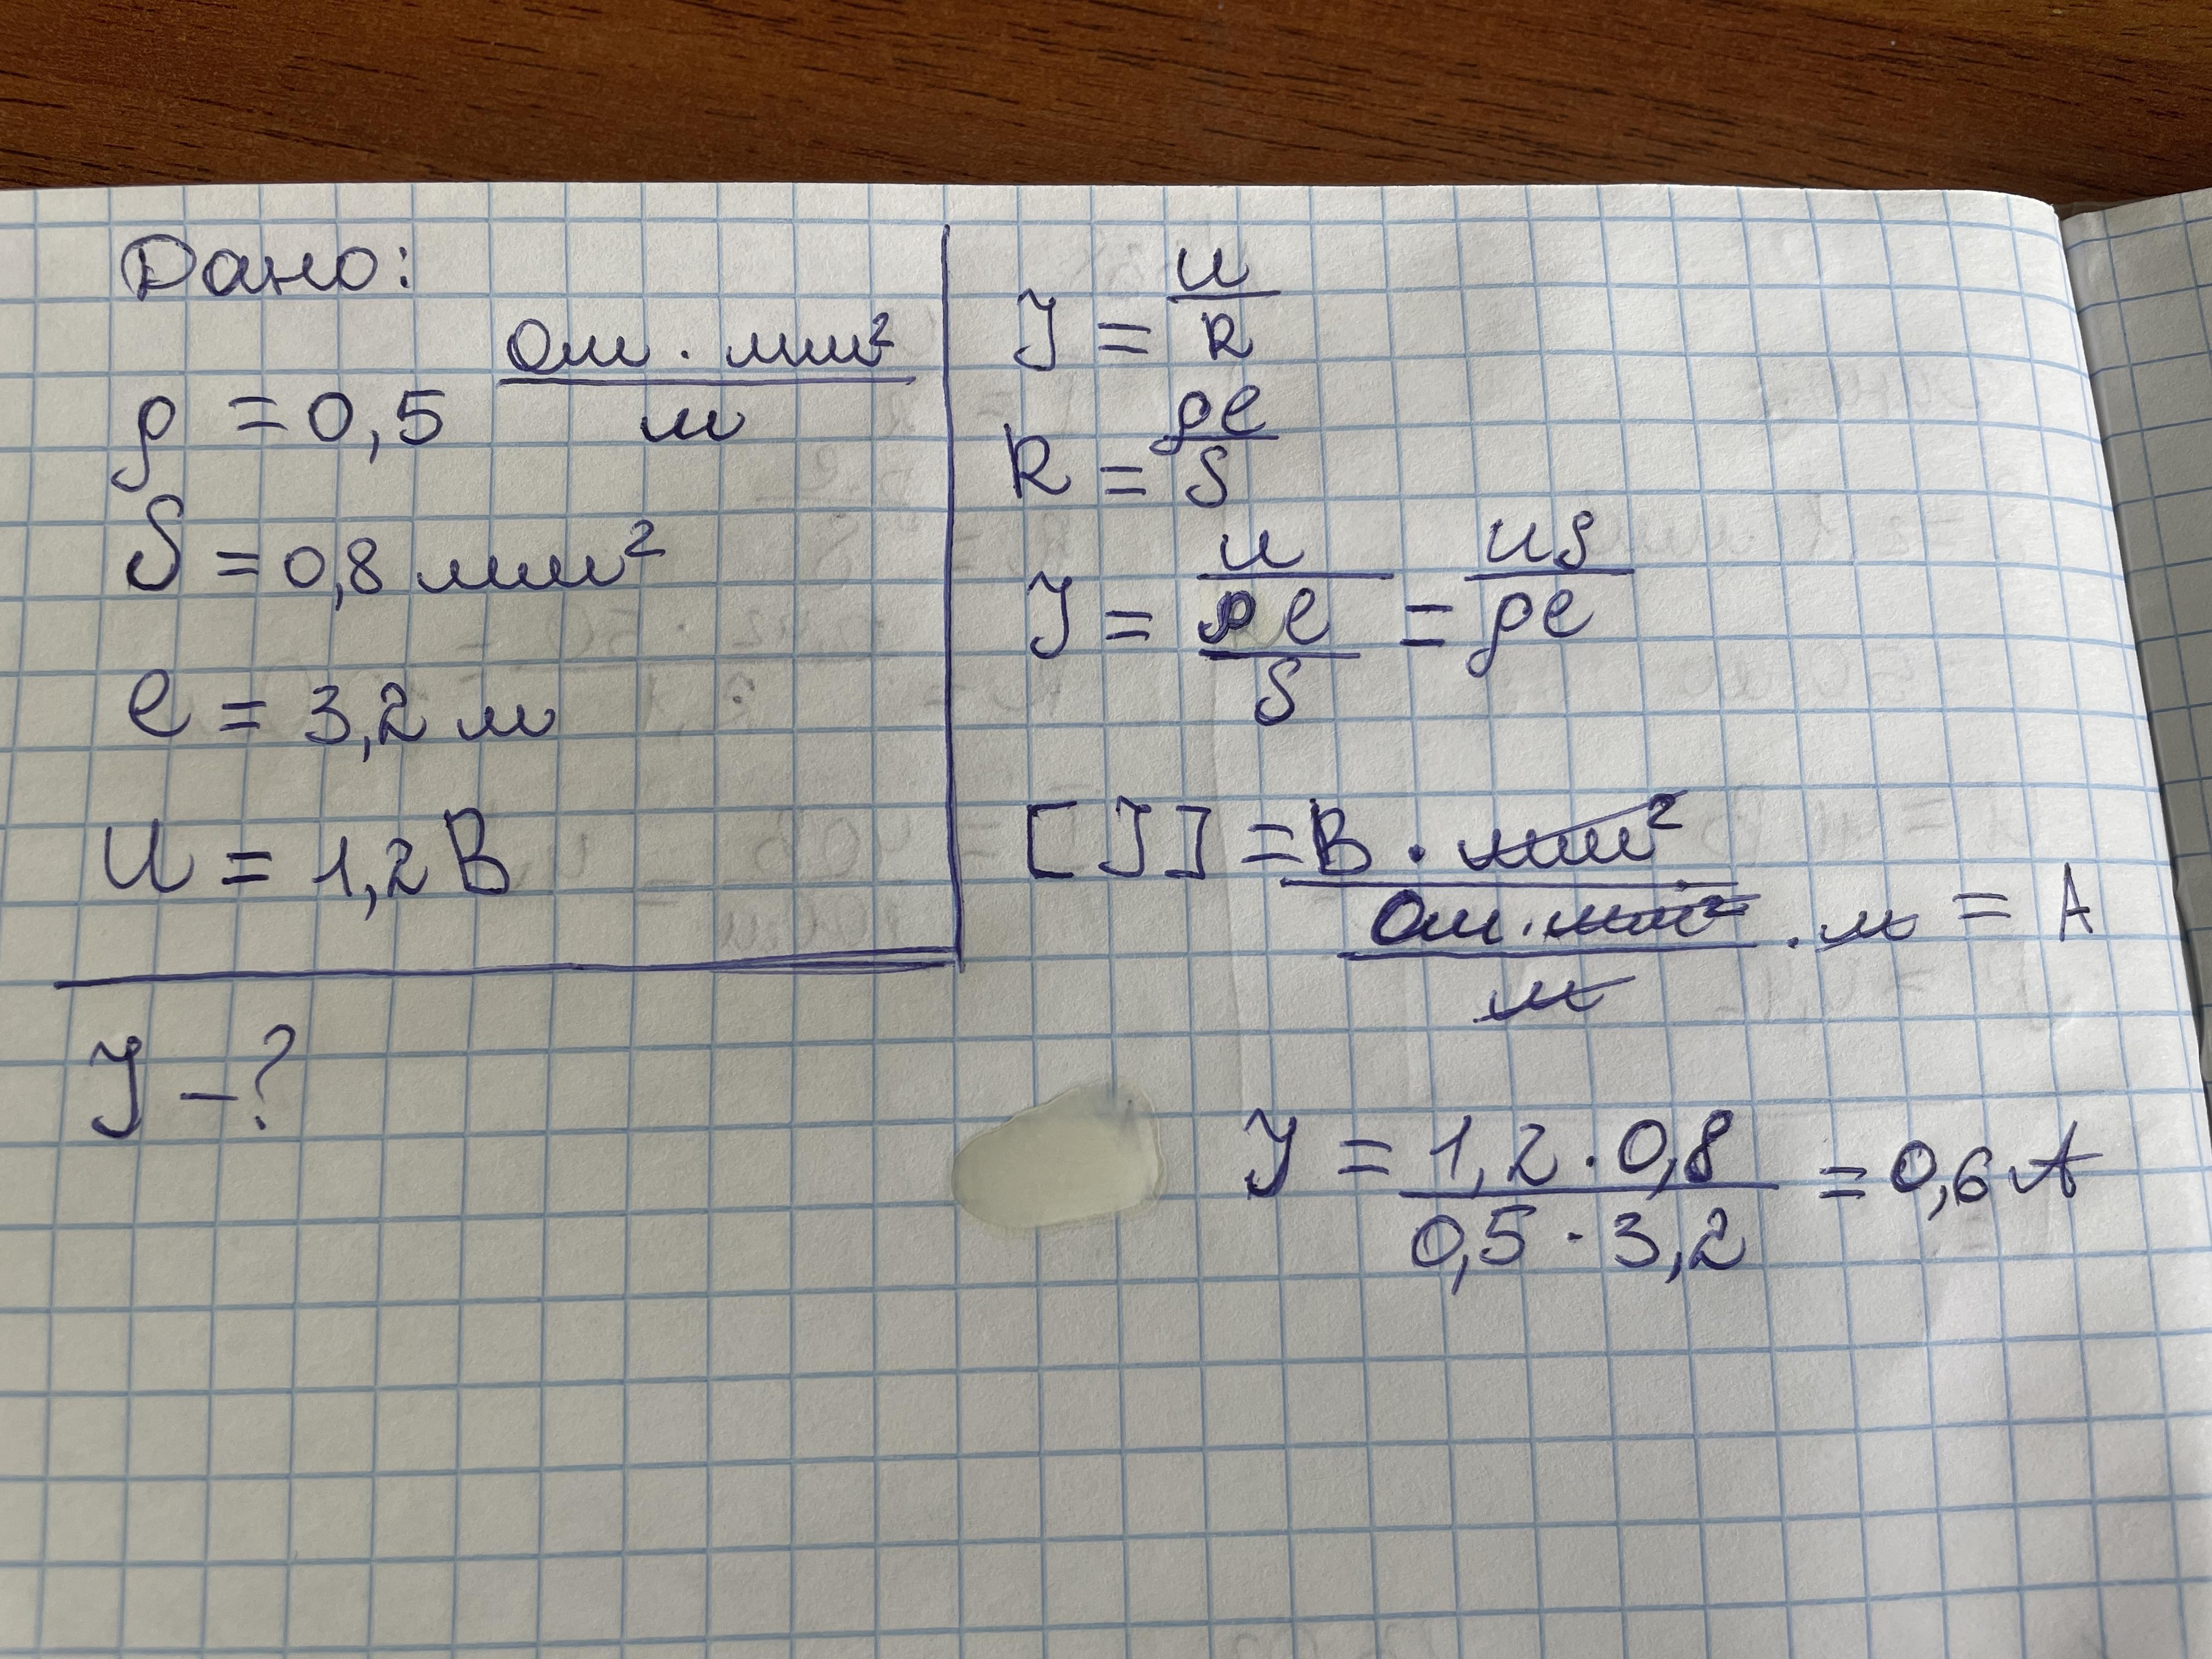 Дано:
ρ = 0,5 Ом · мм² / м
S = 0,8 мм²
l = 3,2 м
U = 1,2 В
J – ?
J = U / R
R = ρl / S
J = U / (ρl / S) = US / ρl
[J] = В · мм² / (Ом · мм² / м · м) = А
J = 1,2 · 0,8 / 0,5 · 3,2 = 0,6 А